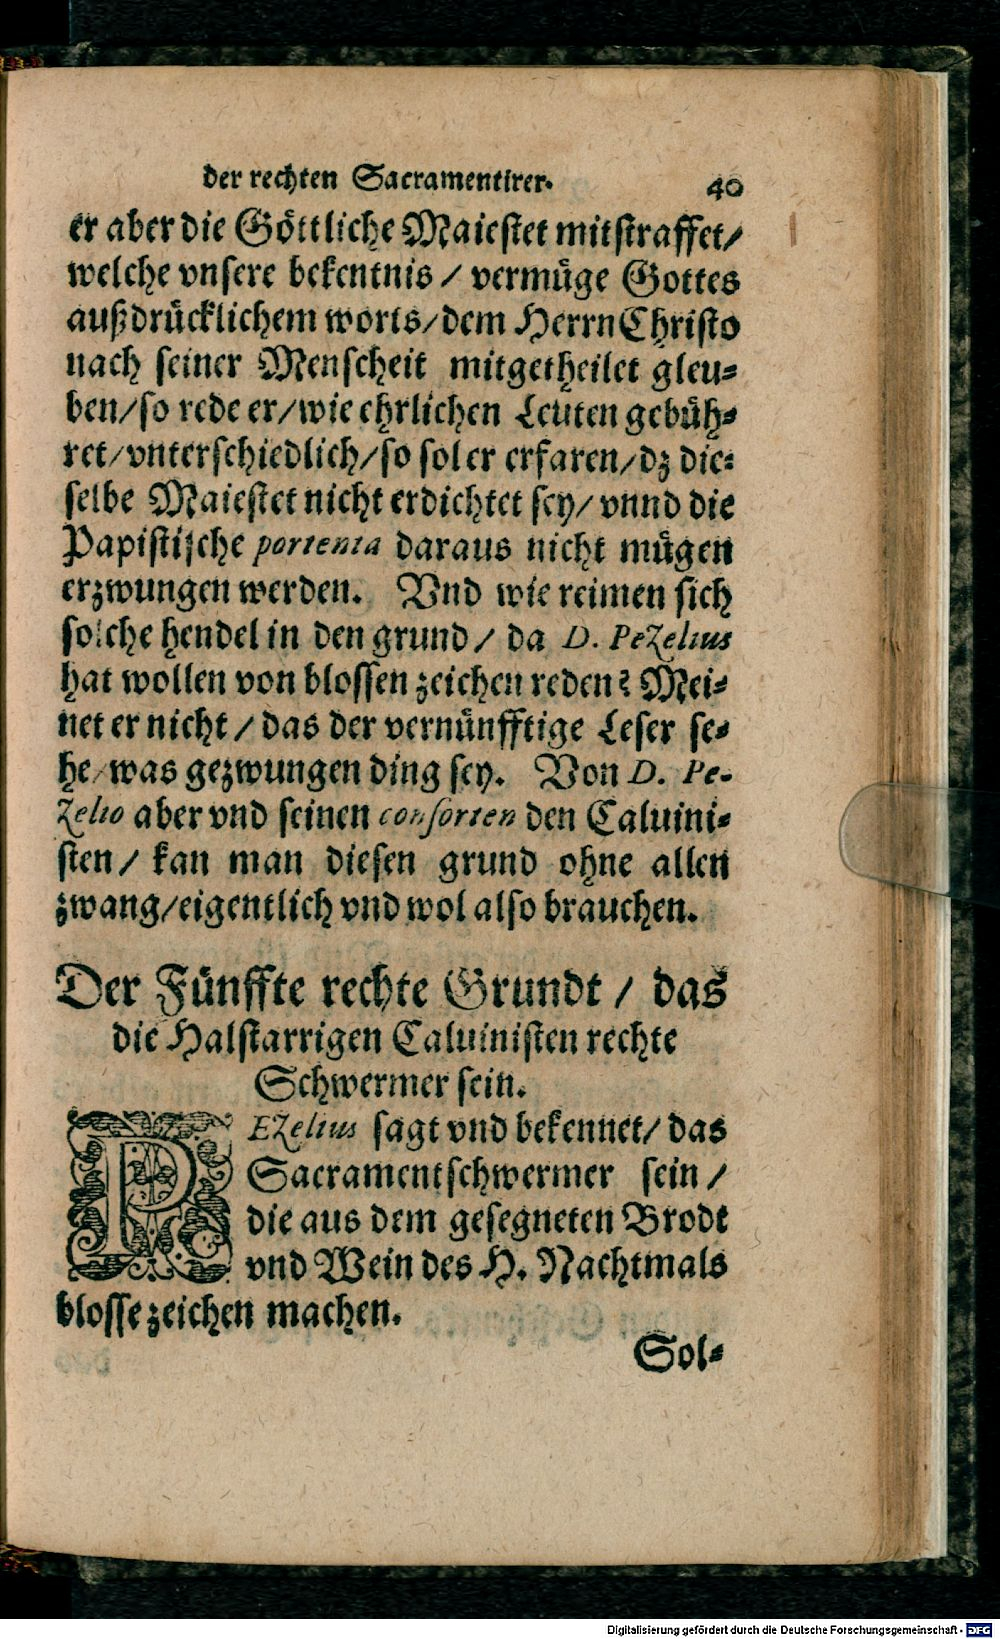 der rechten Sacramentirer. 40
er aber die Göttliche Maiestet mitstraffet/
welche vnsere bekentnis / vermüge Gottes
außdrücklichem worts/dem Herrn Christo
nach seiner Menscheit mitgetheilet gleu-
ben/so rede er/wie ehrlichen Leuten gebüh-
ret/vnterschiedlich/so sol er erfaren/dz die-
selbe Maiestet nicht erdichtet sey/ vnnd die
Papistische portenta daraus nicht mügen
erzwungen werden. Vnd wie reimen sich
solche hendel in den grund/ da D. Pezelius
hat wollen von blossen zeichen reden? Mei-
net er nicht / das der vernünfftige Leser se-
he/was gezwungen ding sey. Von D. Pe-
zelio aber vnd seinen consorten den Caluini-
sten/ kan man diesen grund ohne allen
zwang/eigentlich vnd wol also brauchen.
Der Fünffte rechte Grundt / das
die Halstarrigen Caluinisten rechte
Schwermer sein.
PEzelius sagt vnd bekennet/ das
Sacramentschwermer sein /
die aus dem gesegneten Brodt
vnd Wein des H. Nachtmals
blosse zeichen machen.
Sol-
Digitalisierung gefördert durch die Deutsche Forschungsgemeinschaft - DFG